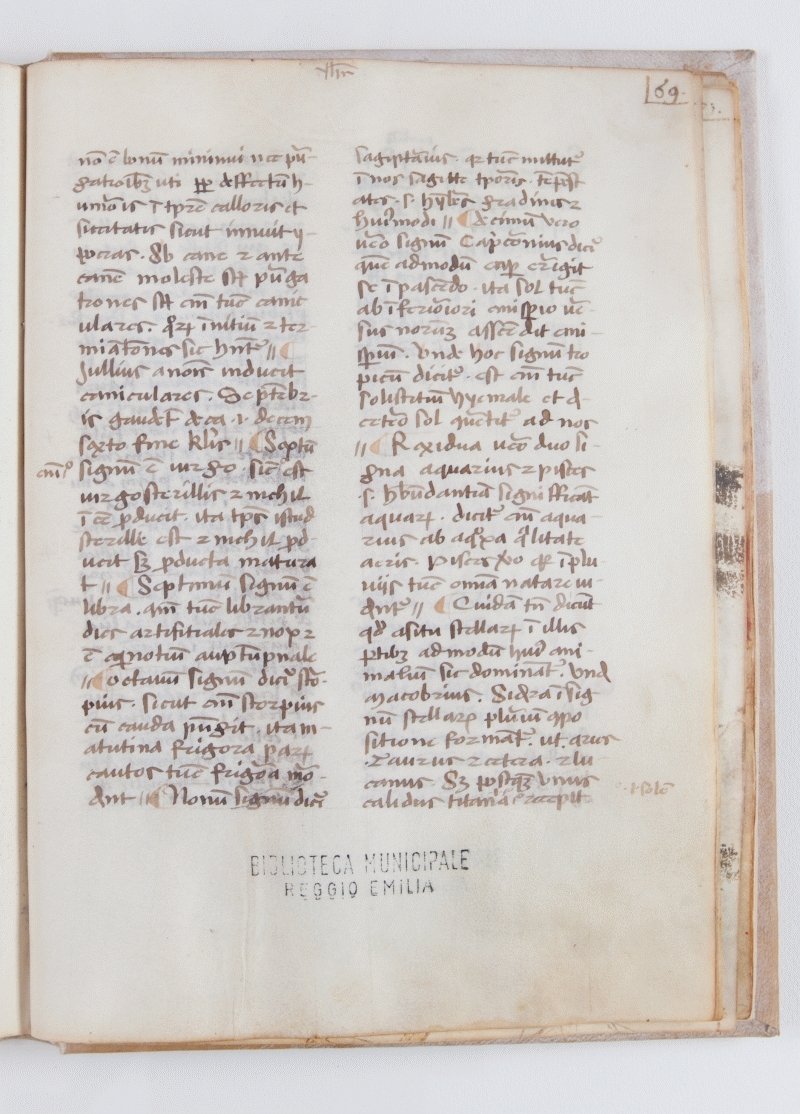 69.
nō ē bonū minimui nec pū-
gatioībꝫ uti ꝓpꝑ deffectū h-
umōis ⁊ ītꝑe calloris et
siccitatis sicut innuit y-
pocras. Sb cane ⁊ ante
canē moleste st̄ pūga
tiones st̄ em̄ tūc canic
ulares. qꝛꝝ īnitiū ⁊ ter-
miātōnes sic hn̄t̄ //
Jullius anonis inducit
caniculares. Septēbr-
is gaudet deca .i. decem
sexto fine klīs // Septū
signū ē uirgo. sic̄ est
uirgo sterillis ⁊ nichil
ī eē ꝓducit. ita tp̄s istud
sterille est ⁊ nichil ꝓd-
ucit sꝫ ꝓducta matura
t // Septimū signū ē
libra. qm̄ tūc librantū
dies artifitiales ⁊ nox ⁊
ē eqnotiū auptūpnale
// octauū signū dicī sco-
pius. sicut em̄ scorpius
cū cauda pūgit. ita m-
atutina frigora paꝝ
cautos tūc frigōa mō-
dnt // Nonū signū dicī
sagiptarius. qꝛ tūc mittūt
ī nos sagitte tp̄oris. tēpest
ates .s. hyēles gradines ⁊
huiꝰmodi // decimū vero
ueō signū Capcornius dicī
que admodū cap̄ erigit
se ī pascēdo. ita sol tūc
ab īferiōiori emisꝑio ue-
sus norūꝫ asscēdit emi-
sꝑiū. Vnde hoc signū tro
picū dicit̄. est em̄ tūc
solistitiū hyemale et d-
ceteō sol queīt̄ ad nos
// Rexidua ueō duo si-
gna aquarius ⁊ pisces
.s. hbūdantiā signifficāt
aquaꝝ. dicit̄ em̄ aqua-
rius ab aq̄ꝓxa q̄litate
aeris. Pisces ꝟo qꝛ ī plu-
uiis tūc omīa natare ui-
dnt̄ // Quidā tn̄ dicūt
qd̓ asitu stellaꝝ ī illis
ꝑtibꝫ admodū huiꝰ ani-
malium sic dominat̄. Vnd̄
macobrius. Sidera ī sig
nū stellaꝝ pluriū ꝯpo
sitione formāt̄. ut. aries
. Taurus ⁊ cetera. ⁊ lu-
canus. Sꝫ postqꝫ Vnius
calidus titania recepit
BIBLIOTECA MUNICIPALE
REGGIO EMILIA